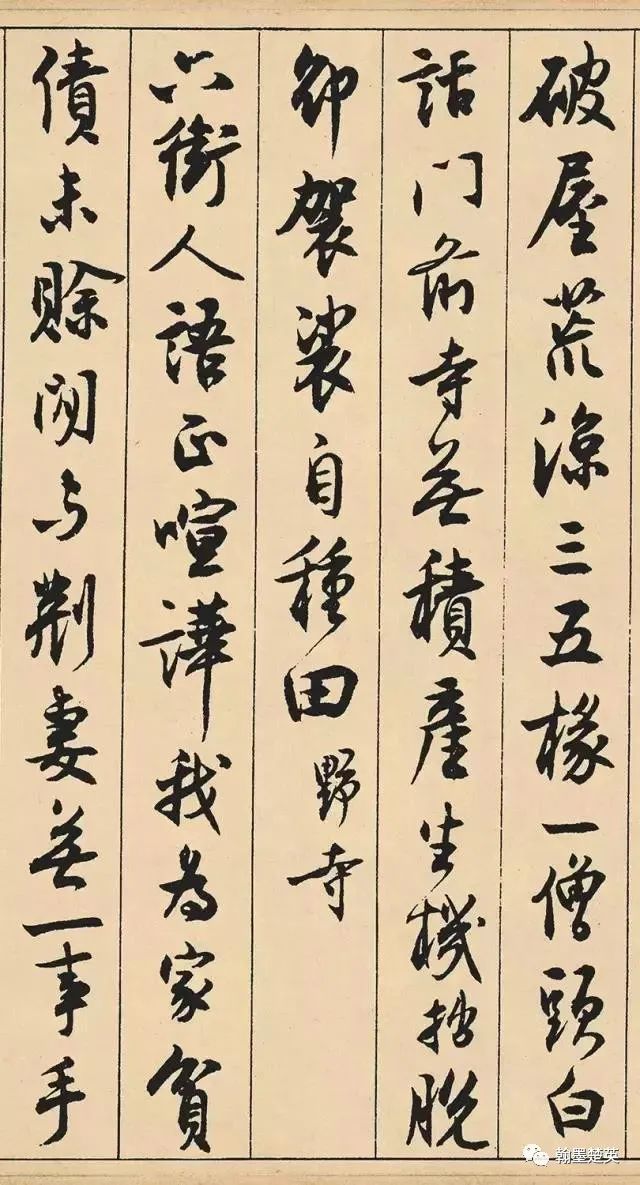 破屋荒涼三五椽一僧頭白
話門前寺無積產生機拙脫
卻袈裟自種田 野寺
六街人語正喧譁我為家貧
債未賒閒與荆妻無一事手
翰墨楚英